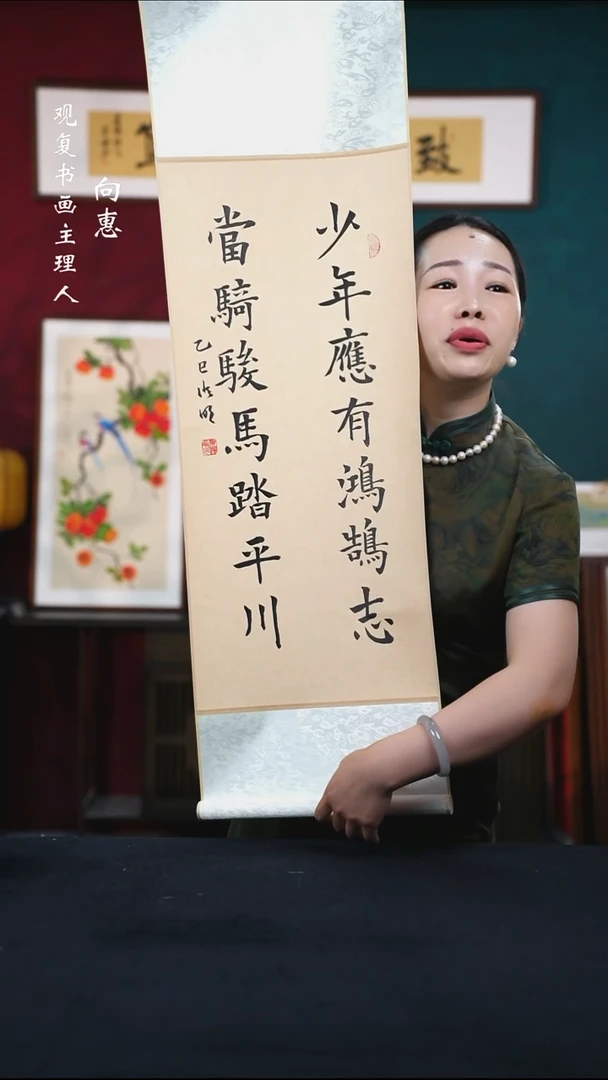 少年應有鴻鵠志
當騎駿馬踏平川
乙巳
观复书画主理人
向惠
致